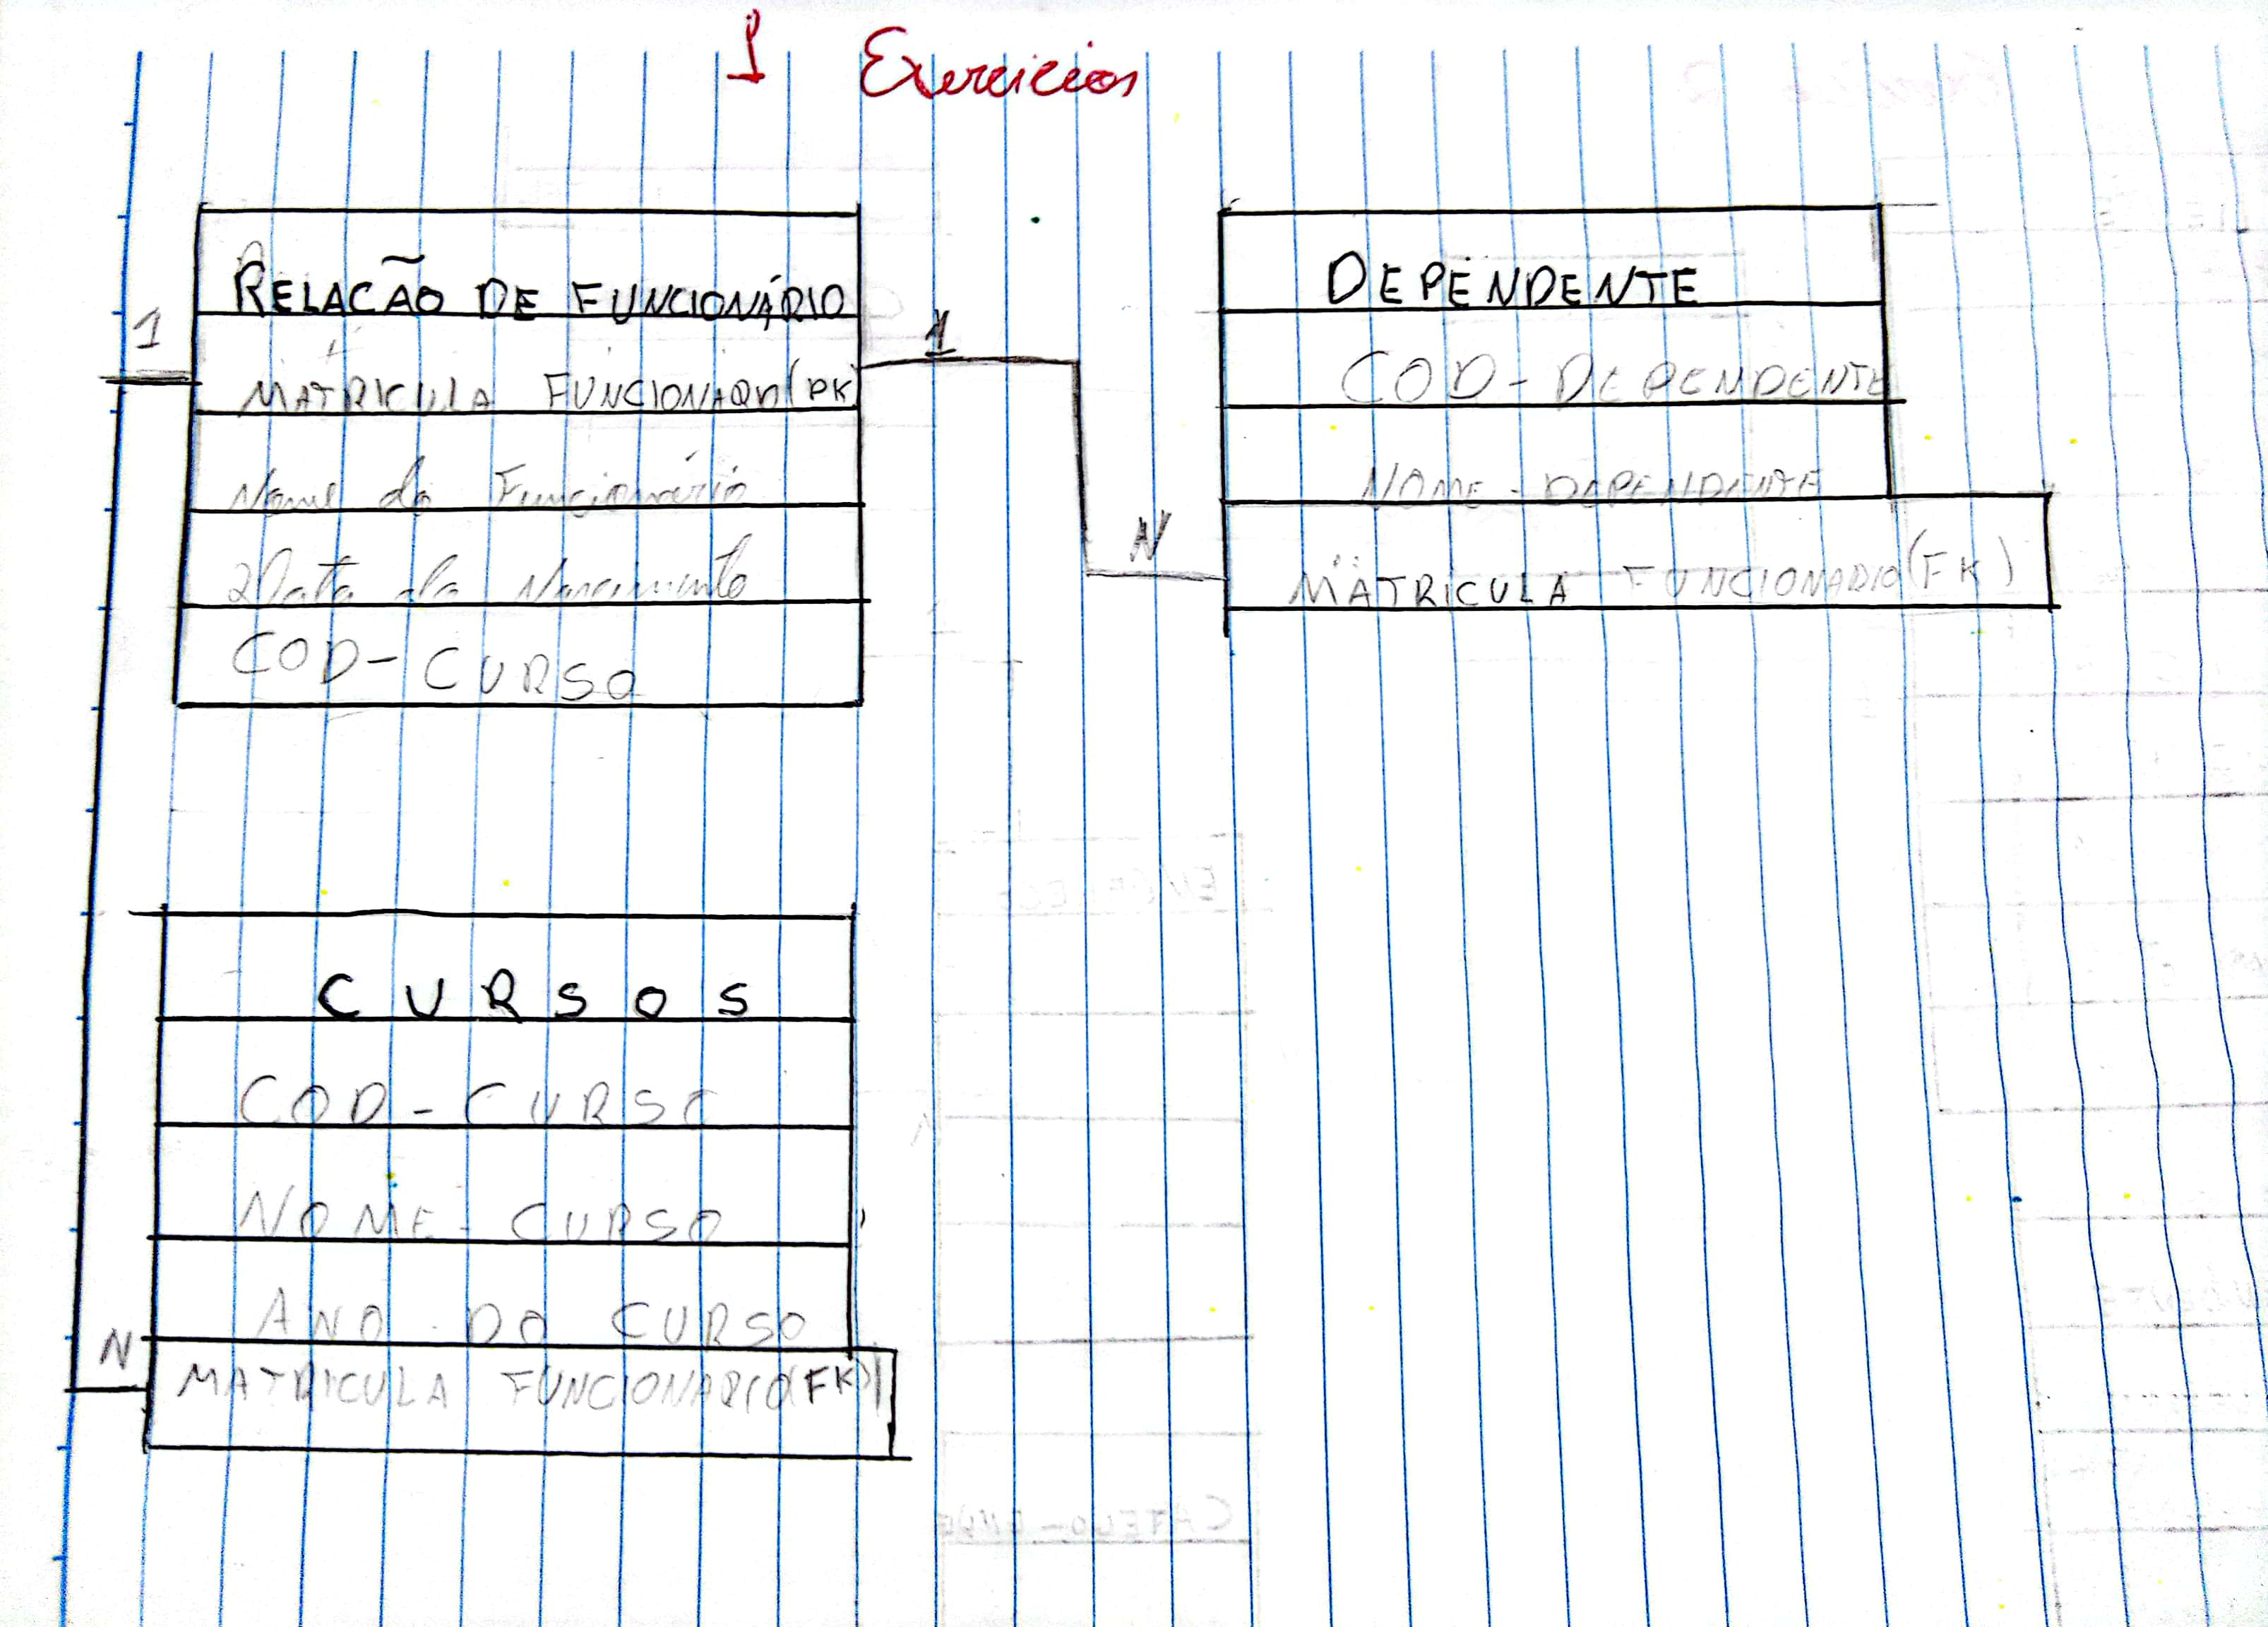 1 Exercicios
RELACÃO DE FUNCIONÁRIO
MATRICULA FUNCIONARIO(PK)
Nome do Funcionário
Data do Nascimento
COD-CURSO
1
1
N
DEPENDENTE
COD-DEPENDENTE
NOME-DEPENDENTE
MATRICULA FUNCIONARIO(FK)
CURSOS
COD-CURSO
NOME-CURSO
ANO DO CURSO
N
MATRICULA FUNCIONARIO(FK)